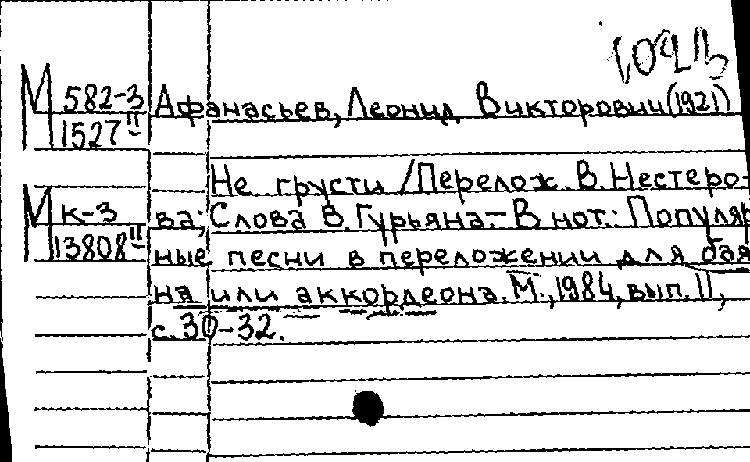 М 582-3 Афанасьев, Леонид Викторович (1921)
1527 II
Не грусти /Перелож. В. Нестеро-
М к-3 ва; Слова В. Гурьяна.- В нот.: Популяр
13808 II ные песни в переложении для бая
на или аккордеона. М., 1984, вып. 11,
с. 30-32.